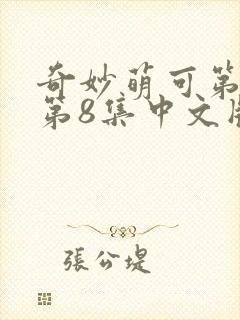 奇妙萌可第
第8集中文版
張公堤